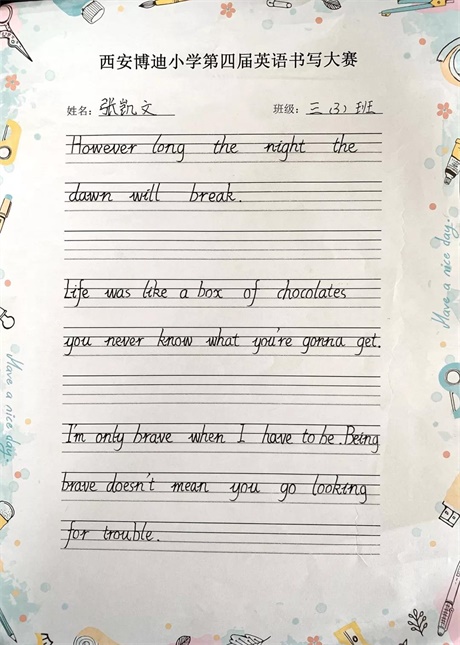 西安博迪小学第四届英语书写大赛
姓名: 张凯文 班级: 三（3）班
However long the night the
dawn will break.
Life was like a box of chocolates
you never know what you're gonna get.
I'm only brave when I have to be. Being
brave doesn't mean you go looking
for trouble.
Have a nice day.
Have a nice day.